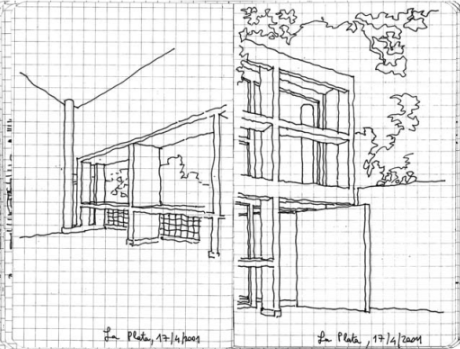 La Plata, 17/4/2001
La Plata, 17/4/2001